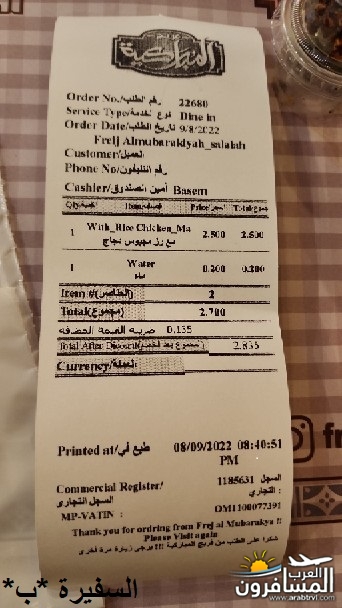 المباركية
Order No./رقم الطلب 22680
Service Type/نوع الخدمة Dine in
Order Date/تاريخ الطلب 9/8/2022
Freij Almubarakiyah_salalah
Customer/العميل
Phone No/رقم التليفون
Cashier/أمين الصندوق Basem
Qty/الكمية Item/الصنف Price/السعر Total/مجموع
1 With_Rice Chicken_Ma 2.500 2.500
مع رز مجبوس دجاج
1 Water 0.200 0.200
ماء
Item #(العناصر) 2
Total(مجموع) 2.700
ضريبة القيمة المضافه 0.135
Total After Discount(مجموع بعد الخصم) 2.835
Currency/العملة
Printed at/طبع في 08/09/2022 08:40:51
PM
Commercial Register/ 1185631 السجل
السجل التجاري التجاري :
MP-VATIN : OM1100077391
Thank you for ordring from Frej al Mubarakya !!
Please Visit again
شكرا على الطلب من فريج المباركية !!! يرجى زيارة مرة أخرى
fr
السفيرة *ب*
العرب
المسافرون
www.arabtrvl.com